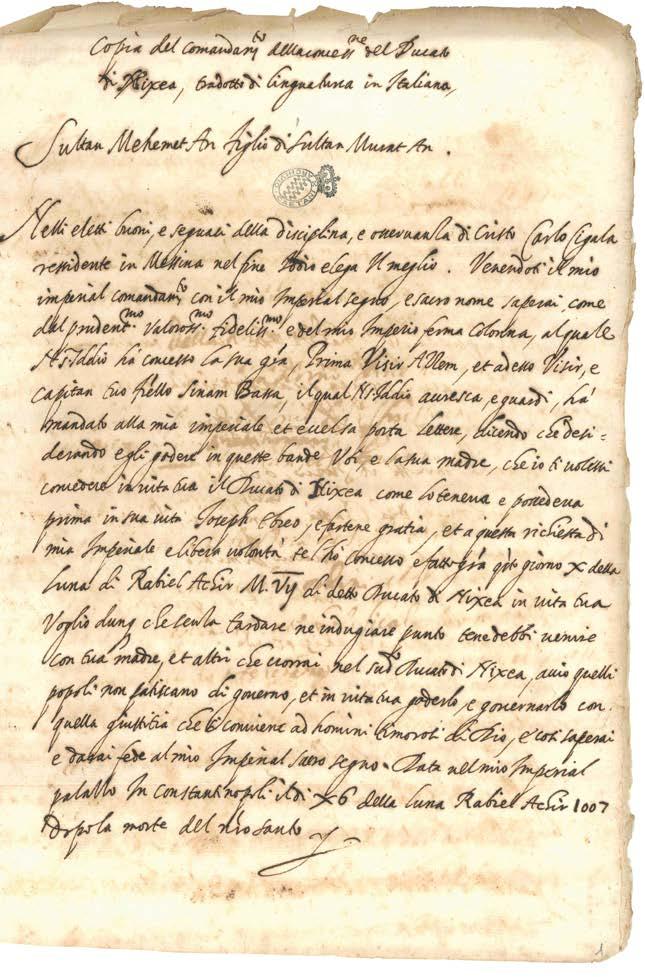 Copia del comandam.to della concess.ne del Ducato
di Nixea, tradotto di lingua turca in Italiana,
Sultan Mehemet An figlio di Sultan Murat An.
Nelli eletti buoni, e seguaci della disciplina, e osservanza di Cristo Carlo Cigala
ressidente in Messina nel fine Iddio elega Il meglio. Venendoti il mio
imperial comandam.to con il mio Imperial segno, e sacro nome saperai come
dal prudent.mo valoross.mo fideliss.mo e del mio Imperio ferma Colonna, al quale
Iddio ha concesso la sua gra, Prima Visir Allem, et adesso Visir, e
Capitan tuo frello Sinam Bassa, il qual Iddio acresca, e guardi, ha
mandato alla mia imperiale et excelsa porta lettere, dicendo che desi=
derando egli godere in queste bande Voi, e la sua madre, che io ti volessi
concedere in vita tua il Ducato di Nixea come lo teneva e possedeva
prima in sua vita Joseph Ebreo, e fartene gratia, et a questa richiesta di
mia Imperiale e libera volontà te l'ho concesso e fatto gra qto giorno X della
luna di Rabiel Achir M. VII di detto Ducato di Nixea in vita tua
Voglio dunq che senza tardare ne indugiare punto te ne debbi venire
con tua madre, et altri che vorrai nel sud.o Ducato di Nixea, acciò quelli
popoli non patiscano di governo, et in vita tua goderlo, e governarlo con
quella giustitia che si conviene ad homini timorosi di Dio, e così saperai
e darai fede al mio Imperial sacro segno. Data nel mio Imperial
palazzo In Constantinopoli il di X6 della luna Rabiel Achir 1007
dopo la morte del nro santo
1